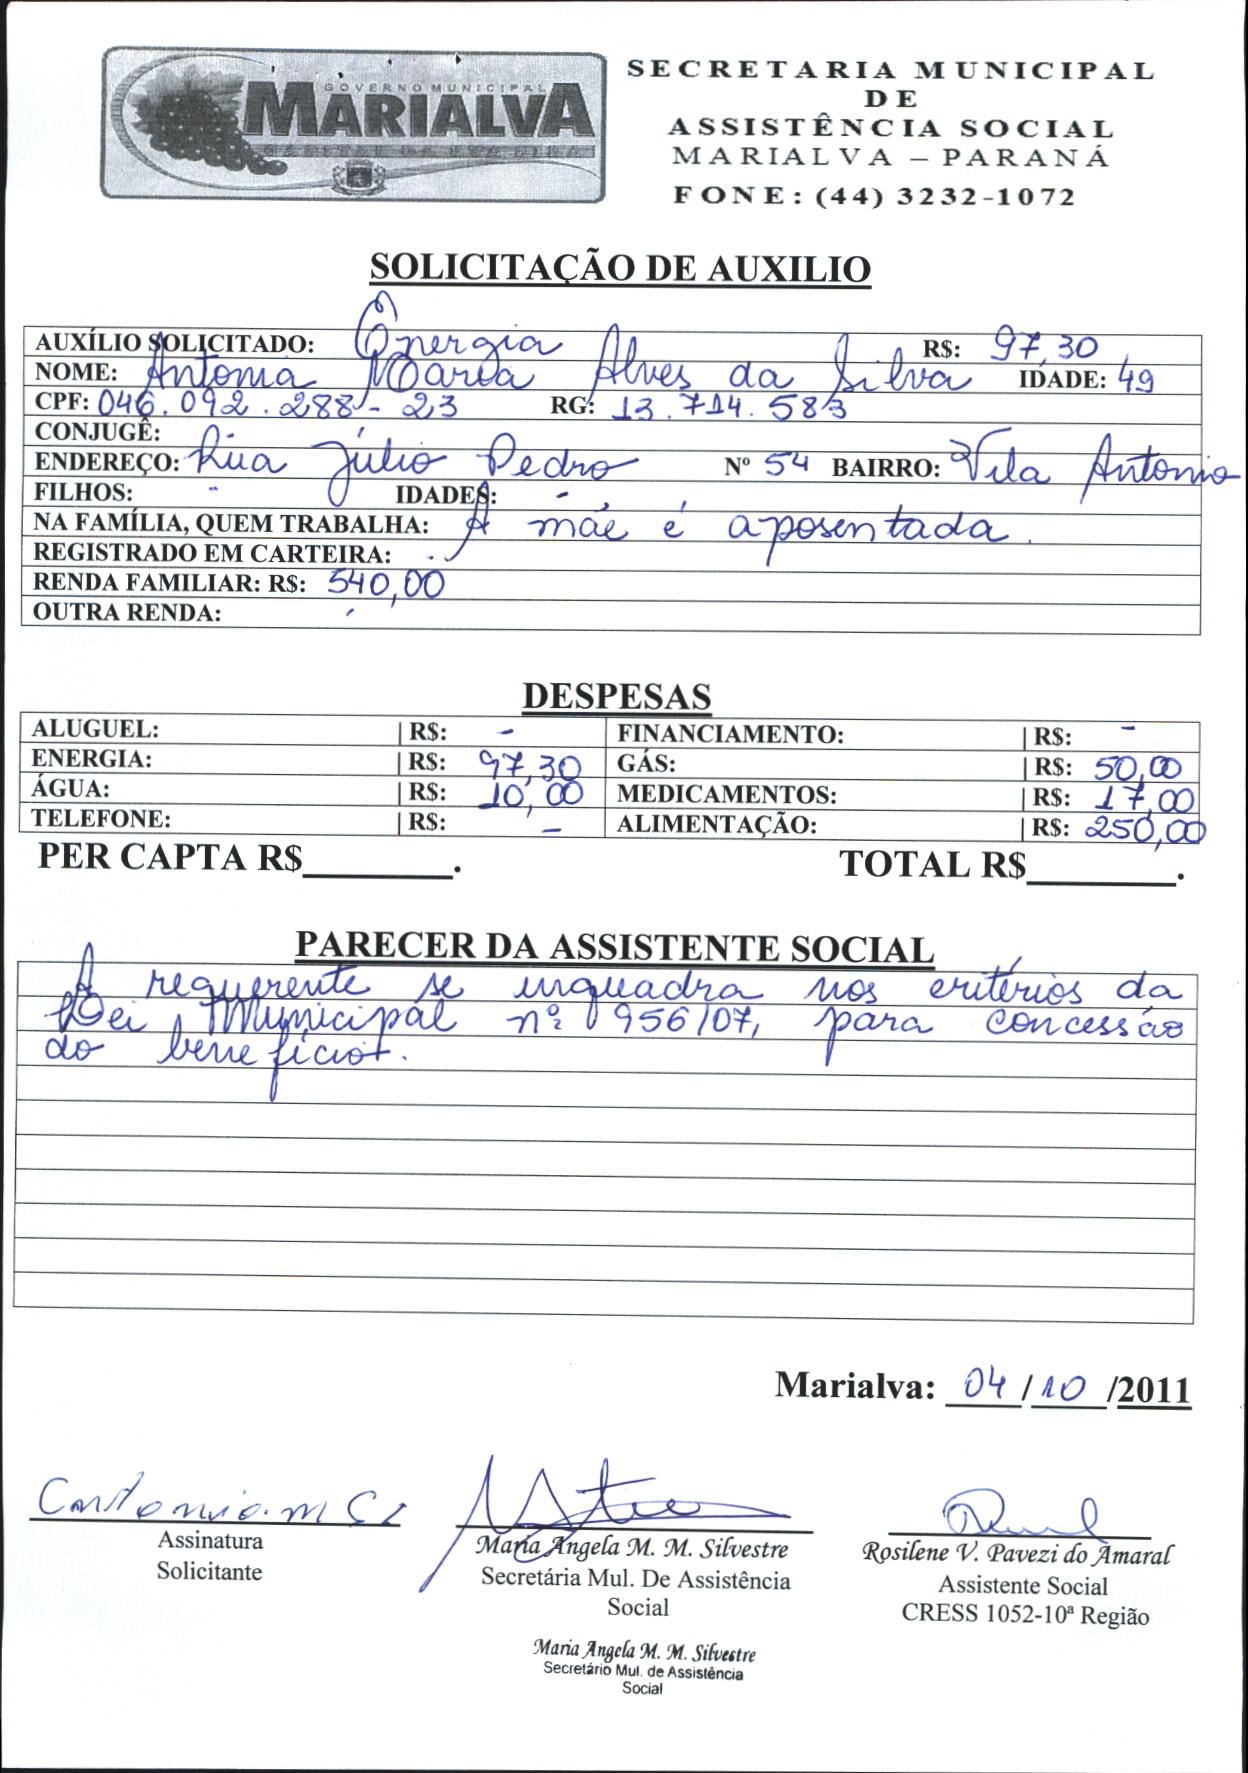 GOVERNO MUNICIPAL
MARIALVA
CAPITAL DA UVA FINA
SECRETARIA MUNICIPAL
DE
ASSISTÊNCIA SOCIAL
MARIALVA – PARANÁ
FONE: (44) 3232-1072
SOLICITAÇÃO DE AUXILIO
AUXÍLIO SOLICITADO: Energia R$: 97,30
NOME: Antonia Maria Alves da Silva IDADE: 49
CPF: 046.092.288-23 RG: 13.714.583
CONJUGÊ:
ENDEREÇO: Rua Júlio Pedro Nº 54 BAIRRO: Vila Antonio
FILHOS: - IDADES: -
NA FAMÍLIA, QUEM TRABALHA: A mãe é aposentada.
REGISTRADO EM CARTEIRA: .
RENDA FAMILIAR: R$: 540,00
OUTRA RENDA: -
DESPESAS
ALUGUEL: | R$: - FINANCIAMENTO: | R$: -
ENERGIA: | R$: 97,30 GÁS: | R$: 50,00
ÁGUA: | R$: 10,00 MEDICAMENTOS: | R$: 17,00
TELEFONE: | R$: - ALIMENTAÇÃO: | R$: 250,00
PER CAPTA R$________. TOTAL R$________.
PARECER DA ASSISTENTE SOCIAL
A requerente se inquadra nos critérios da
Lei Municipal nº 956/07, para concessão
do benefício.
Marialva: 04/10/2011
Assinatura
Solicitante
Maria Angela M. M. Silvestre
Secretária Mul. De Assistência
Social
Rosilene V. Pavezi do Amaral
Assistente Social
CRESS 1052-10ª Região
Maria Angela M. M. Silvestre
Secretário Mul. de Assistência
Social